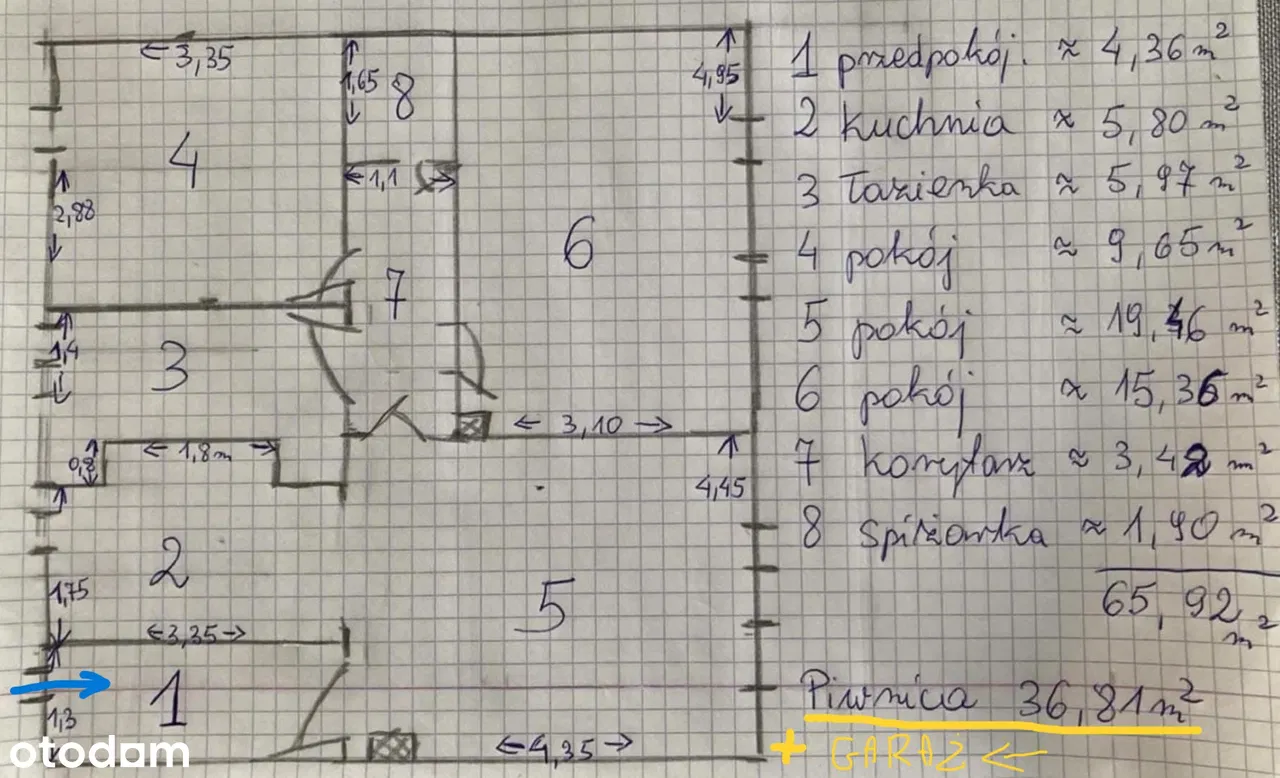 3,35
1,65
8
4,95
4
1,1
2,88
6
7
1,4
3
3,10
0,8
1,8m
4,45
2
1,75
5
3,35
1
1,3
4,35
1 przedpokój. ≈ 4,36 m²
2 kuchnia ≈ 5,80 m²
3 łazienka ≈ 5,97 m²
4 pokój ≈ 9,65 m²
5 pokój ≈ 19,46 m²
6 pokój ≈ 15,36 m²
7 korytarz ≈ 3,42 m²
8 spiżarka ≈ 1,90 m²
65,92 m²
Piwnica 36,81 m²
+ GARAŻ ←
otodom